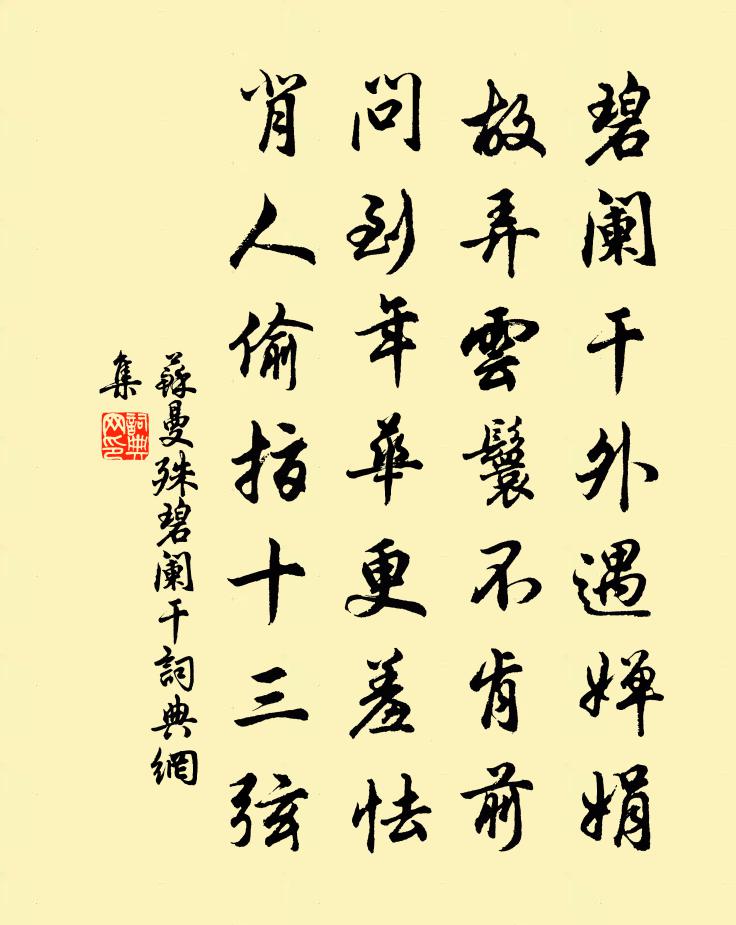 碧阑干外遇婵娟
故弄雲鬟不肯前
问到年華更羞怯
背人偷指十三弦
蘇曼殊碧阑干詞典網
集
詞典
网印